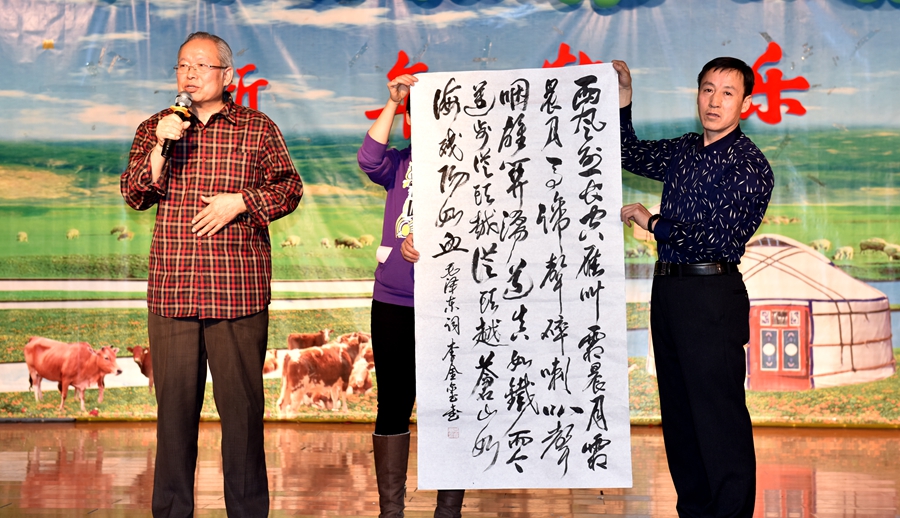 新年 乐
西風烈长空雁叫霜晨月霜
晨月马蹄聲碎喇叭聲
咽雄関漫道真如鐵而今
迈步從头越從头越蒼山如
海残陽如血
毛泽东词 李金玺书